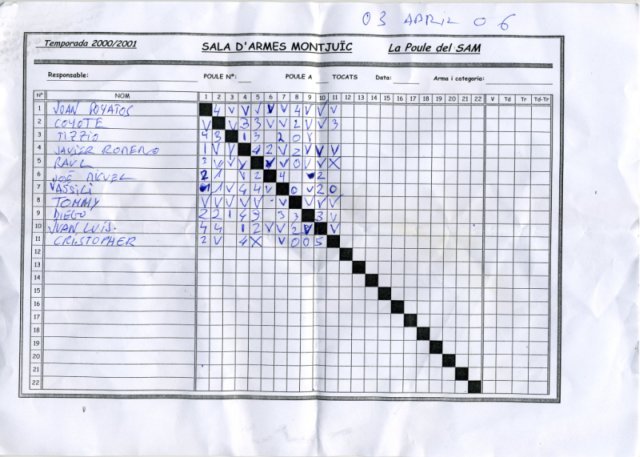 03 APRIL 06
Temporada 2000/2001 SALA D'ARMES MONTJUÏC La Poule del SAM
Responsable: POULE Nº: POULE A TOCATS Data: Arma i categoria:
Nº NOM 1 2 3 4 5 6 7 8 9 10 11 12 13 14 15 16 17 18 19 20 21 22 V Td Tr Td-Tr
1 JOAN POYATOS 4 V V V V V V 4 V V V
2 COYOTE V V 3 3 V V 2 V V 3
3 TIZZIO 4 3 1 3 2 0 V
4 JAVIER ROMERO 1 V V 4 2 V 2 V V V
5 RAUL 2 V V V V V 0 V V X
6 2 1 V 2 4 2
7 VASSILI 1 V 4 4 V 0 V 2 0
8 TOMMY V V V V V V V V V V
9 DIEGO 2 2 1 4 3 3 3 3 V
10 JUAN LUIS. 4 4 1 2 V V 2 V V
11 CRISTOPHER 2 V 4 X V 0 0 5
12
13
14
15
16
17
18
19
20
21
22